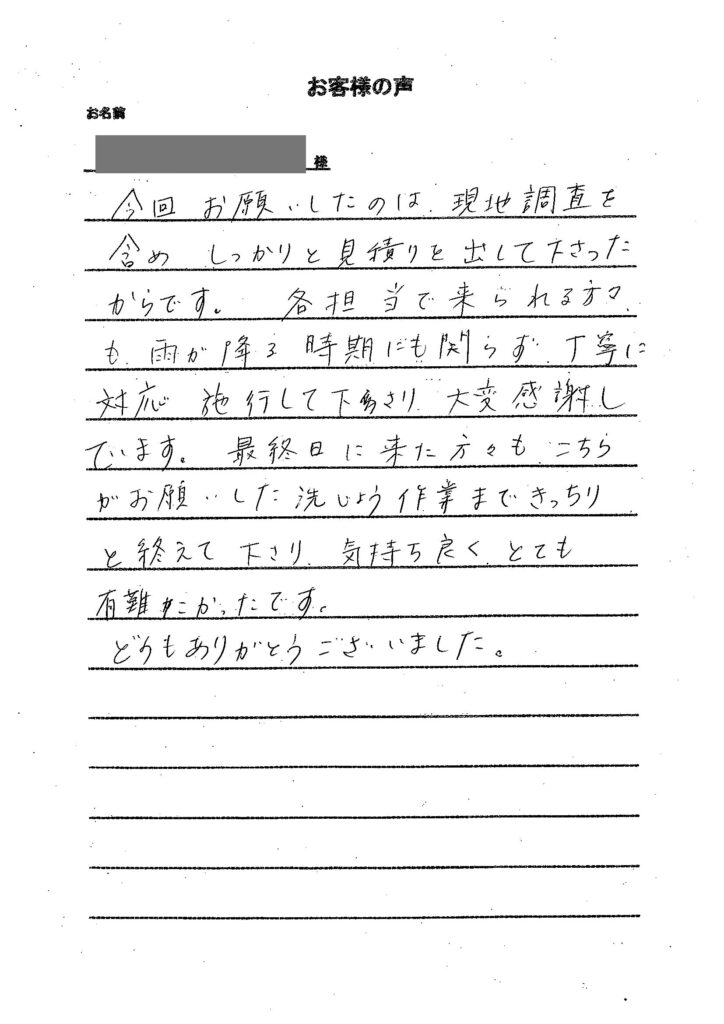 お客様の声
お名前
様
今回 お願いしたのは、現地調査を
含め しっかりと見積りを出して下さった
からです。 各担当で来られる方々
も、雨が降る時期にも関らず、丁寧に
対応 施行して下さり、大変感謝し
ています。最終日に来た方々も、こちら
がお願いした洗じょう作業まできっちり
と終えて下さり、気持ち良く、とても
有難たかったです。
どうもありがとうございました。